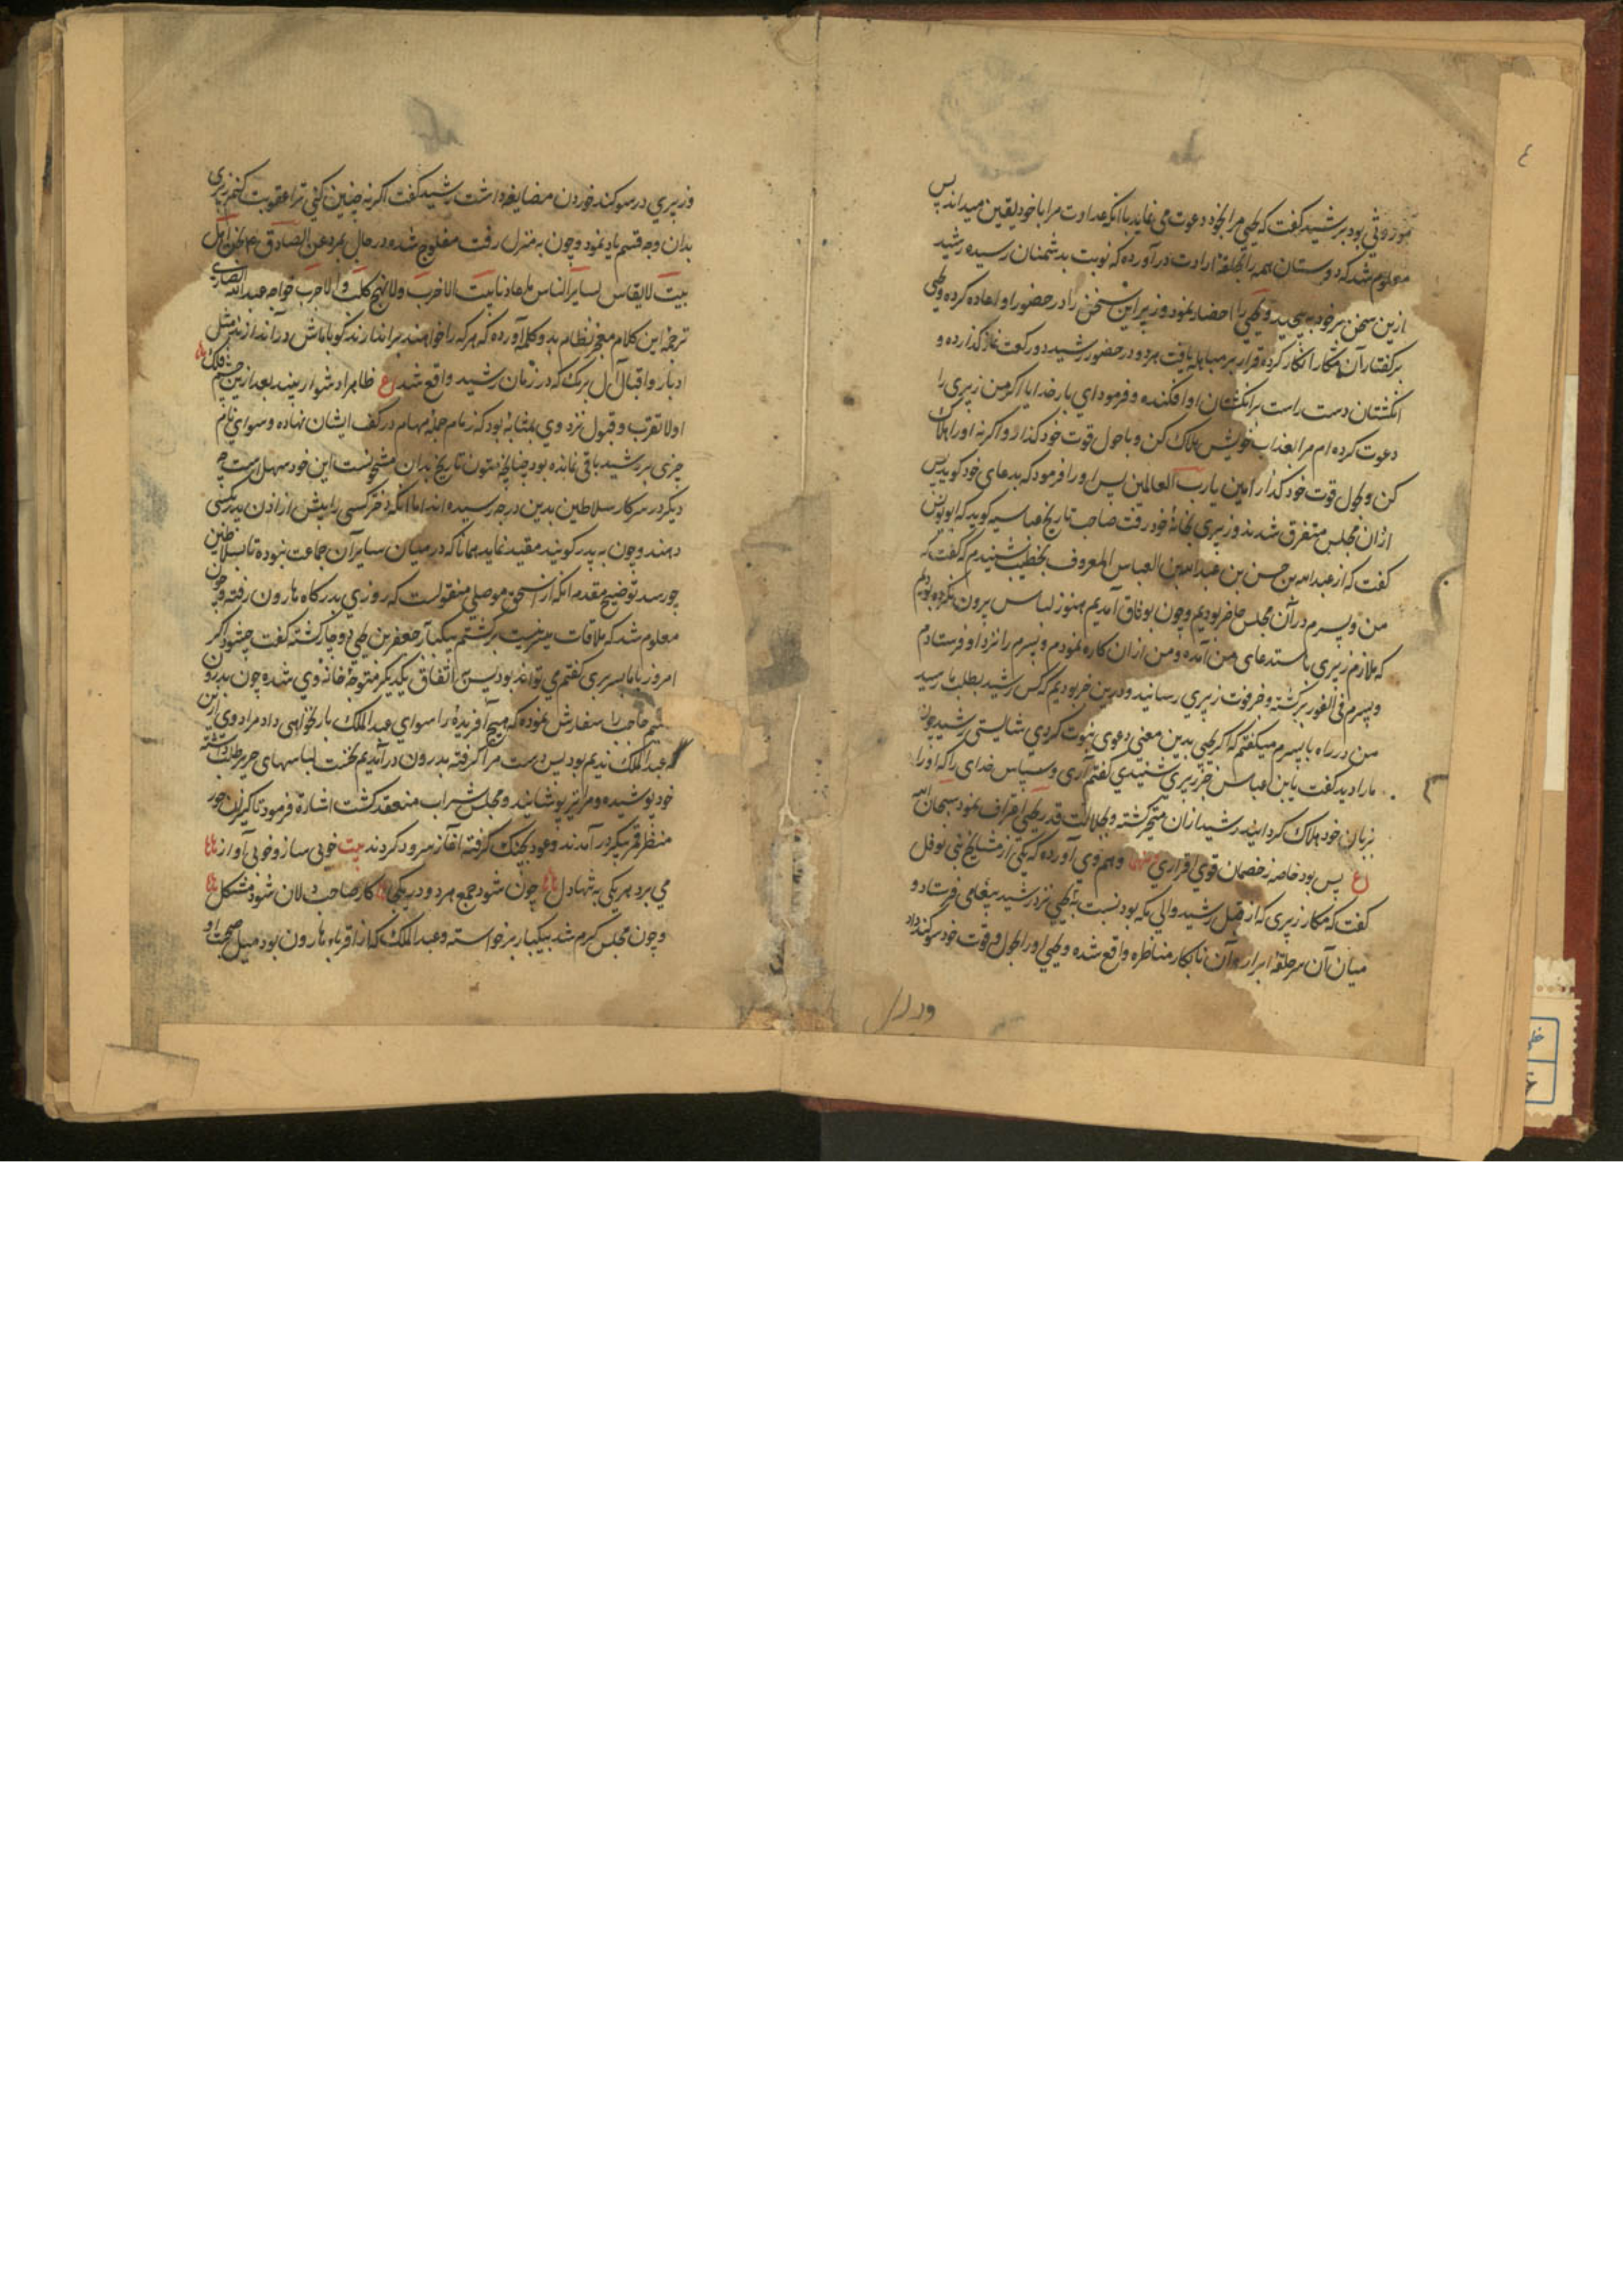 موروثی بود برشید گفت که یحیی مرا بخود دعوت می نماید با انکه عداوت مرا با خود یقین میداند پس
معلوم شد که دوستان همه را بحلقهٔ ارادت در آورده که نوبت بدشمنان رسیده رشید
ازین سخن بر خود به پیچید و یحیی را احضار نمود و زبیر این سخن را در حضور او اعاده کرده و یحیی
بر گفتار آن مکار انکار کرد قرار بر مباهله یافت هر دو در حضور رشید دو رکعت نماز گذارده و
انگشتان دست راست بر انگشتان او افکنده و فرمود ای بار خدایا اگر من زبیری را
دعوت کرده ام مرا بعذاب خویش هلاک کن و با حول قوت خود گذار و اگر نه او را هلاک
کن و بحول قوت خود گذار امین یا رب العالمین پس او را فرمود که بدعای خود گوید پس
ازان مجلس متفرق شدند و زبیری بخانهٔ خود رفت صاحب تاریخ عباسیه گوید که ابو یونس
گفت که از عبد الله بن حسن بن عبد الله بن العباس المعروف بخطیب شنیدم که گفت که
من و پسرم در آن مجلس حاضر بودیم و چون بوثاق آمدیم هنوز لباس بیرون نکرده بودیم
که ملازم زبیری باستدعای من آمده و من ازان کاره نمودم و پسرم را نزد او فرستادم
و پسرم فی الفور برگشته و خبر فوت زبیری رسانید و درین خبر بودیم که کس رشید بطلب ما رسید
من در راه با پسرم میگفتم که اگر یحیی بدین معنی دعوی نبوت کردی شایستی رشید چون
ما را دید گفت یا بن عباس خبر زبیری شنیدی گفتم آری و سپاس خدای را که او را
بزبان خود هلاک گردانید رشید ازان متحیر گشته و بجلالت قدر یحیی اعتراف نمود سبحان الله
ع بس بود خاصه ز خصمان قوی اقراری و هم وی آورده که یکی از مشایخ بنی نوفل
گفت که مکار زبیری که از قبل رشید والی مکه بود نسبت به یحیی نزد رشید پیغامی فرستاد و
میان آن سر حلقهٔ ابرار و آن نابکار مناظره واقع شده و یحیی او را بحول و قوت خود سوگند داد
و زبیری در سوگند خوردن مضایقه داشت رشید گفت اگر نه چنین کنی ترا عقوبت کنم زبیری
بدان وجه قسم یاد نمود و چون به منزل رفت مفلوج شده در حال بمرد عن الصادق ع م نحن اهل
بیت لا یقاس بسایر الناس ما عادنا بیت الا خرب ولا نبح کلب الا جرب خواجه عبد الله انصاری
ترجمه این کلام معجز نظام بدو کلمه آورده که هر که را خواهند براندازند گو با ماش در اندازند مثل
ادبار و اقبال آل برمک که در زمان رشید واقع شد ع ظاهرا دشوار بیند بعد ازین چشم فلک
اولا تقرب و قبول نزد وی بمثابهٔ بود که زمام جمله مهام در کف ایشان نهاده و سوای نام
چیزی بر رشید باقی نمانده بود چنانچه متون تاریخ بدان مشحونست این خود سهل است چه
دیگر در سرکار سلاطین بدین درجه رسیده اند اما انکه دختر کسی را پیش از اذن پدر بکسی
دهند و چون به پدر گویند مقید نماید همانا که در میان سایر آن جماعت نبوده تا بسلاطین
چو رسد توضیح مقدمه انکه از اسحق موصلی منقولست که روزی بدرگاه هارون رفته و چون
معلوم شد که ملاقات میسر نیست برگشتم بیکبار جعفر بن یحیی دوچار گشته گفت چشود اگر
امروز با ما بسر بری گفتم می تواند بود پس اتفاق یکدیگر متوجهٔ خانه وی شده چون بدرون
شدیم حاجب را سفارش نموده که هیچ آفریدهٔ را سوای عبد الملک بار نخواهی داد مراد وی ازین
عبد الملک ندیم بود پس دست مرا گرفته بدرون در آمدیم نخست لباسهای حریر طلب داشته
خود پوشیده و مرا نیز پوشانید و مجلس شراب منعقد گشت اشاره فرمود تا کنیزان حور
منظر قمر پیکر در آمدند و عود بچنک گرفته آغاز سرود کردند بیت خوبی ساز و خوبی آواز
می برد هر یکی به تنها دل چون شود جمع هر دو در یکجا کار صاحب دلان شود مشکل
و چون مجلس گرم شد بیکبار برخواسته و عبد الملک که از اقرباء هارون بود میل صحبت او